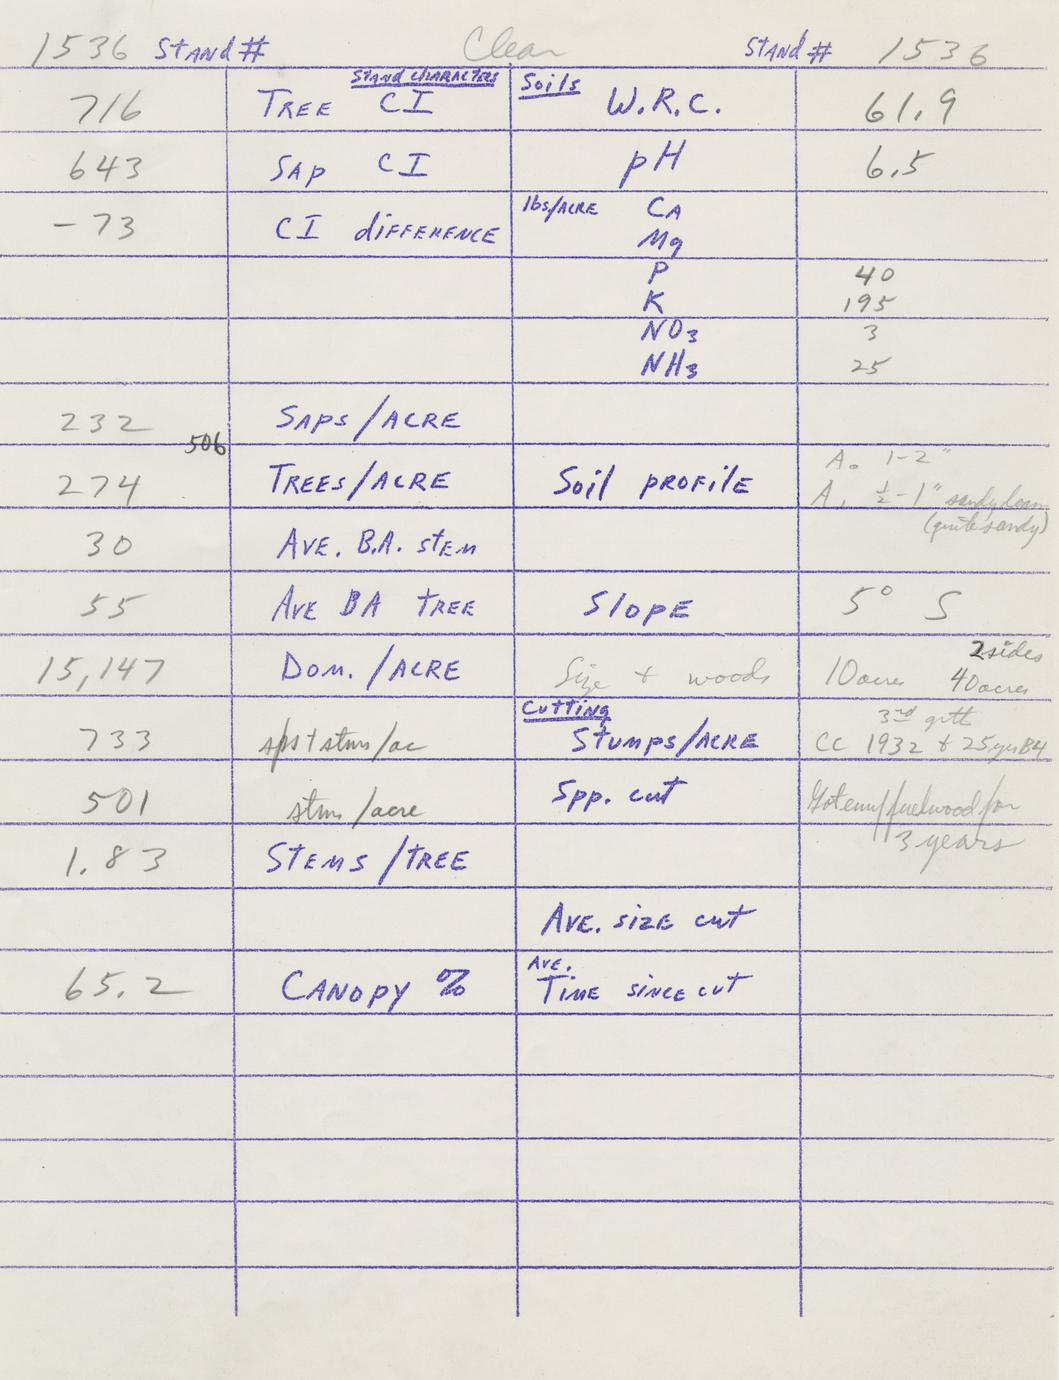 1536 Stand # Clear Stand # 1536
Stand Characters Soils
716 Tree CI W.R.C. 61.9
643 Sap CI pH 6.5
-73 CI difference lbs/Acre Ca
Mg
P 40
K 195
NO3 3
NH3 25
232 Saps/Acre
506
274 Trees/Acre Soil profile A0 1-2"
A1 ½-1" sandy loam
(quite sandy)
30 Ave. B.A. stem
55 Ave BA tree Slope 5° S
15,147 Dom./Acre Size + woods 10 acres 2 sides 40 acres
Cutting
733 sps + stms/ac Stumps/Acre 3rd grth
CC 1932 + 25 yrs B4
501 stms/acre Spp. cut fuelwood for
3 years
1.83 Stems/tree
Ave. size cut
65.2 Canopy % Ave. Time since cut